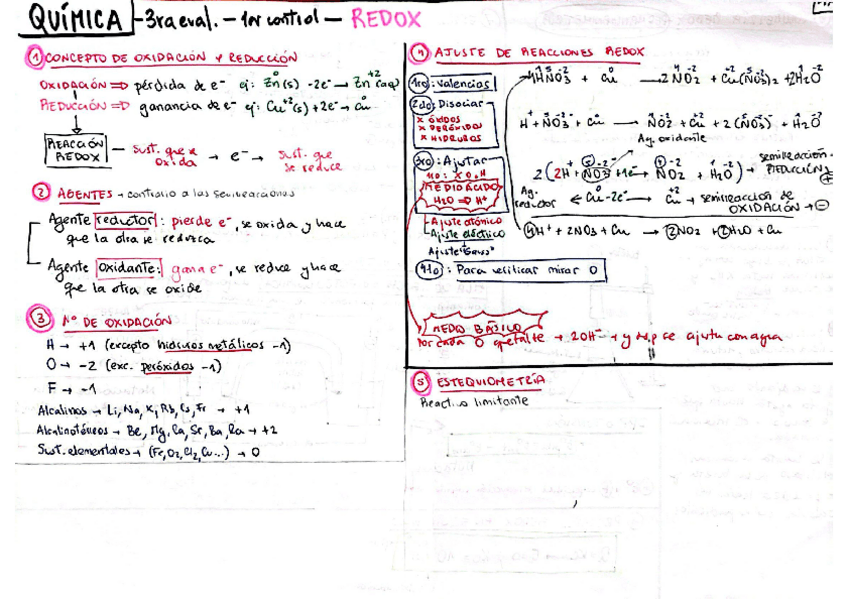 QUÍMICA - 3ra eval. - 1er control - REDOX
① CONCEPTO DE OXIDACIÓN Y REDUCCIÓN
OXIDACIÓN ⇒ pérdida de e⁻ ej: Zn(s) - 2e⁻ → Zn(aq)
REDUCCIÓN ⇒ ganancia de e⁻ ej: Cu⁺²(s) + 2e⁻ → Cu
REACCIÓN REDOX — Sust. que se oxida → e⁻ → sust. que se reduce
② AGENTES → contrario a las semireacciones
Agente reductor: pierde e⁻, se oxida y hace
que la otra se reduzca
Agente oxidante: gana e⁻, se reduce y hace
que la otra se oxide
③ Nº DE OXIDACIÓN
H → +1 (excepto hidruros metálicos -1)
O → -2 (exc. peróxidos -1)
F → -1
Alcalinos → Li, Na, K, Rb, Cs, Fr → +1
Alcalinotérreos → Be, Mg, Ca, Sr, Ba, Ra → +2
Sust. elementales → (Fe, O₂, Cl₂, Cu...) → 0
④ AJUSTE DE REACCIONES REDOX
1ro: Valencias
4HNO₃ + Cu → 2NO₂ + Cu(NO₃)₂ + 2H₂O
2do: Disociar
x ÓXIDOS
x PERÓXIDOS
x HIDRUROS
H⁺ + NO₃⁻ + Cu → NO₂ + Cu + 2(NO₃) + H₂O
Ag. oxidante
3ro: Ajustar
MEDIO ÁCIDO
H₂O ⇒ H⁺
2(2H⁺ + NO₃ + 1e⁻ → NO₂ + H₂O) → semireacción REDUCCIÓN +
Ag. reductor ← Cu - 2e⁻ → Cu → semireacción de OXIDACIÓN → -
Ajuste atómico
Ajuste eléctrico
Ajuste "Gauss"
4H⁺ + 2NO₃ + Cu → 2NO₂ + 2H₂O + Cu
4to: Para verificar mirar O
MEDIO BÁSICO
Por cada O que falte → 2OH⁻ → y se ajusta con agua
⑤ ESTEQUIOMETRÍA
Reactivo limitante